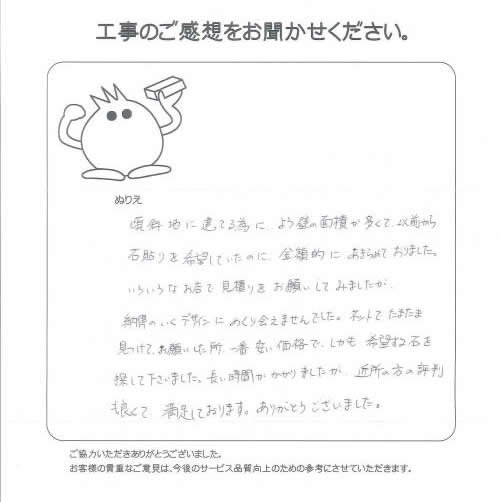 工事のご感想をお聞かせください。
ぬりえ
傾斜地に建てる為に、よう壁の面積が多くて、以前から
石貼りを希望していたのに、金額的にあきらめておりました。
いろいろなお店で見積りをお願いしてみましたが、
納得のいくデザインにめぐり会えませんでした。ネットでたまたま
見つけて、お願いした所、一番安い価格で、しかも希望する石を
探して下さいました。長い時間がかかりましたが、近所の方の評判
も良くて、満足しております。ありがとうございました。
ご協力いただきありがとうございました。
お客様の貴重なご意見は、今後のサービス品質向上のための参考にさせていただきます。